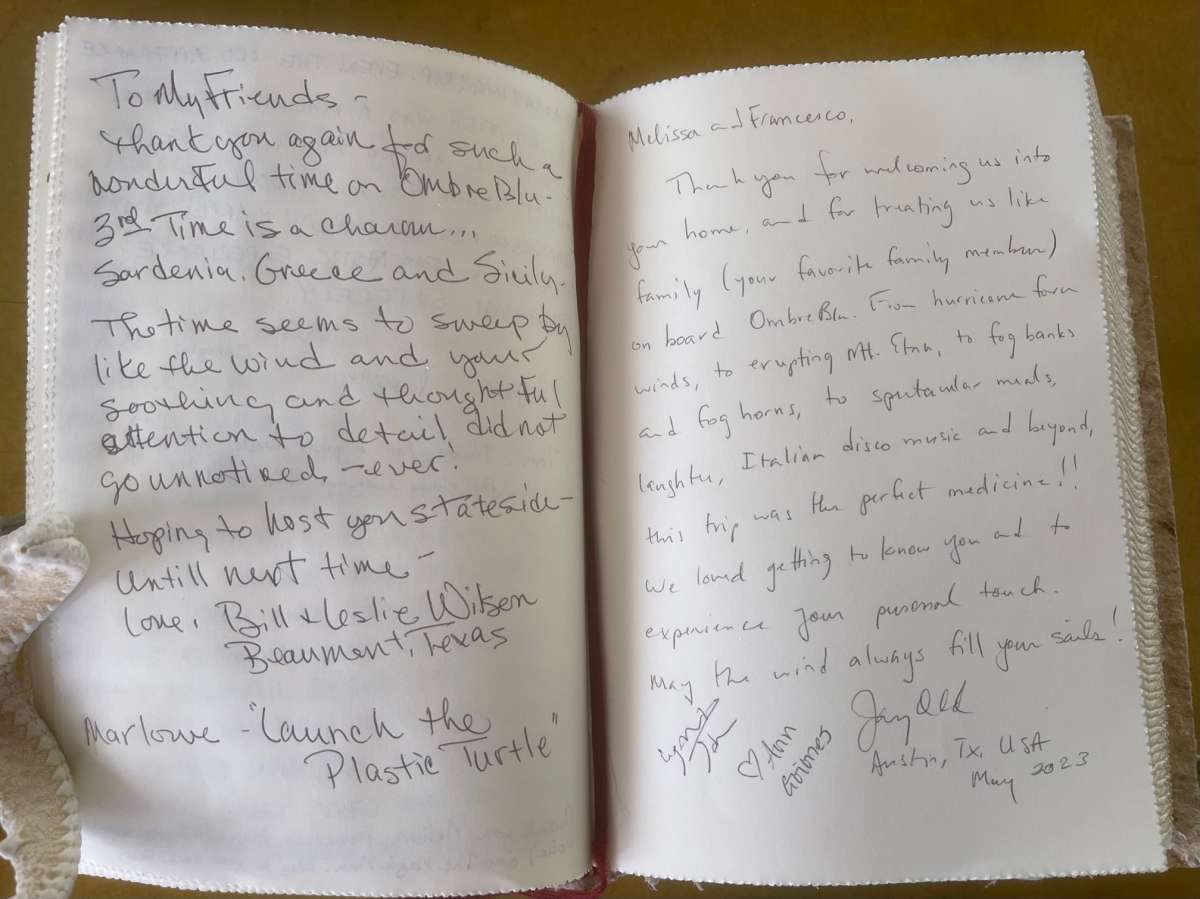 To My Friends -
thank you again for such a
wonderful time on OmbreBlu -
3rd Time is a charm...
Sardenia, Greece and Sicily.
The time seems to sweep by
like the wind and your
soothing and thoughtful
attention to detail did not
go unnoticed - ever!
Hoping to host you stateside -
Untill next time -
Love, Bill & Leslie Wilson
Beaumont, Texas
Marlowe - "Launch the
Plastic Turtle"
Melissa and Francesco,
Thank you for welcoming us into
your home, and for treating us like
family (your favorite family members)
on board OmbreBlu. From hurricane force
winds, to erupting Mt. Etna, to fog banks
and fog horns, to spectacular meals,
laughter, Italian disco music and beyond,
this trip was the perfect medicine!!
We loved getting to know you and to
experience your personal touch.
May the wind always fill your sails!
Jay
♡ Ann
Grimes
Austin, Tx. USA
May 2023